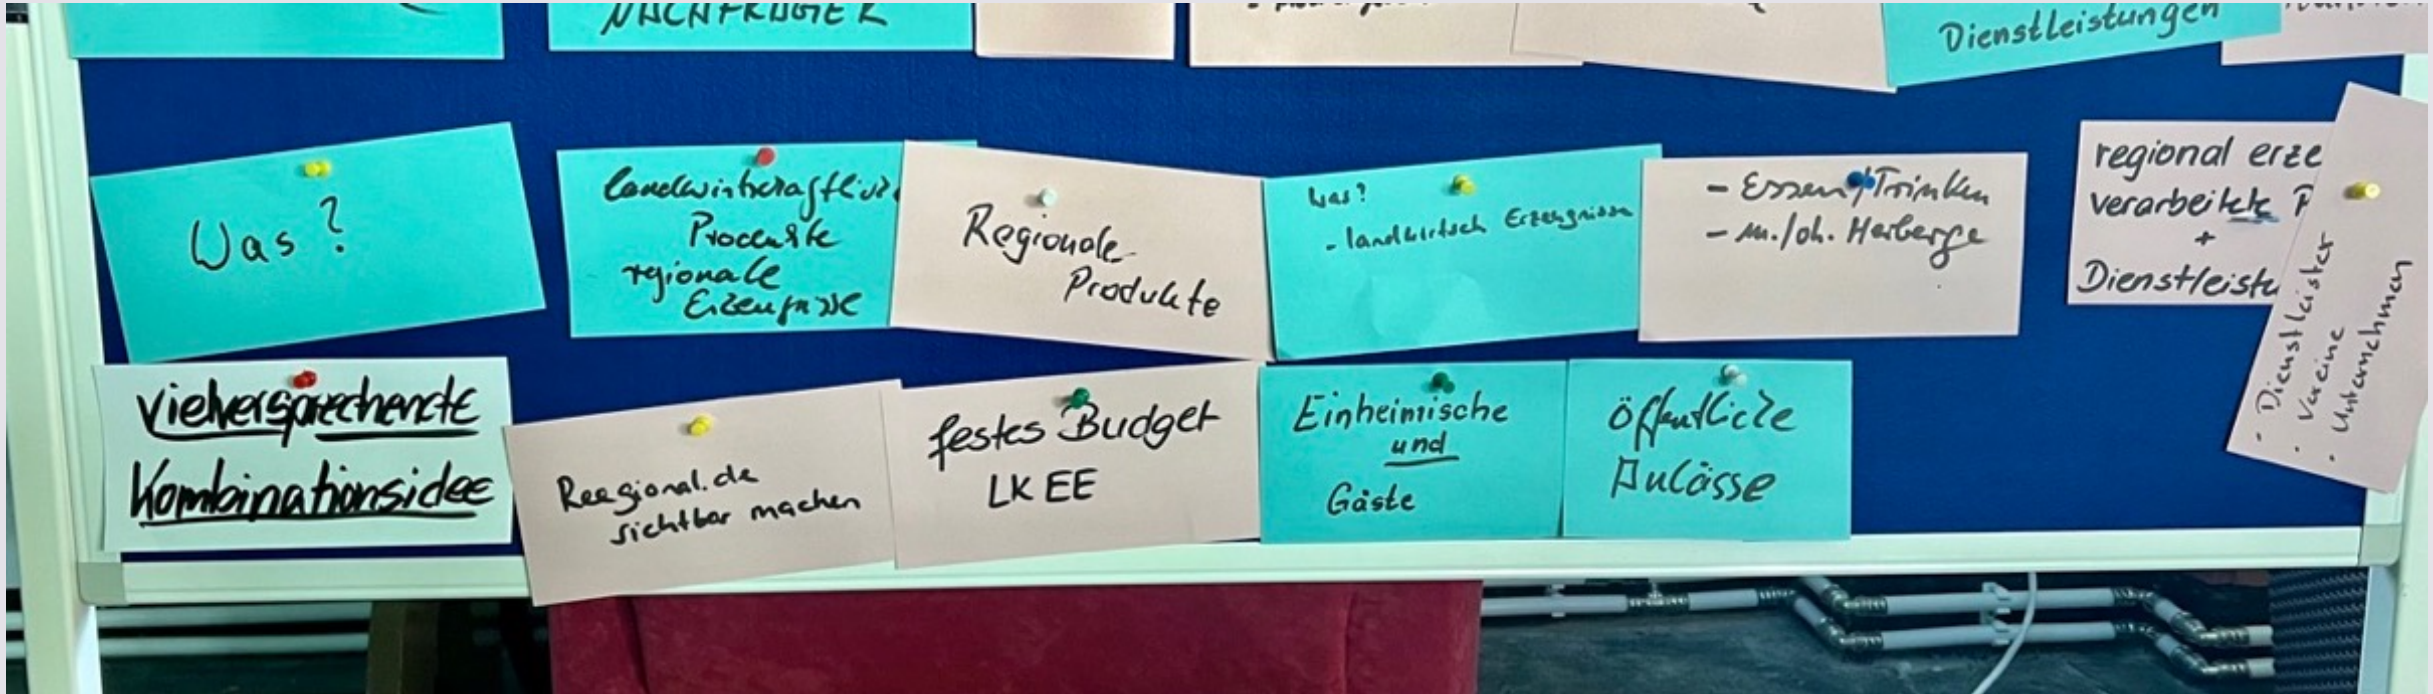 NACHFRAGER
Dienstleistungen
Was?
landwirtschaftliche
Produkte
regionale
Erzeugnisse
Regionale
Produkte
Was?
- landwirtsch Erzeugnisse
- Essen/Trinken
- m./oh. Herberge
regional erze
verarbeitete P
+
Dienstleistu
· Dienstleister
· Vereine
· Unternehmen
Vielversprechende
Kombinationsidee
Reegional.de
sichtbar machen
festes Budget
LK EE
Einheimische
und
Gäste
öffentliche
Anlässe